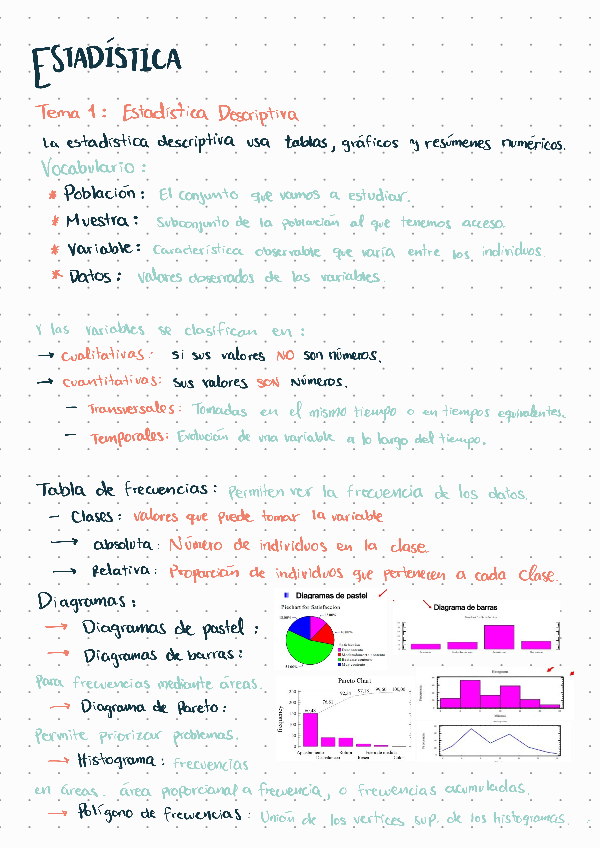 ESTADÍSTICA
Tema 1: Estadística Descriptiva
La estadística descriptiva usa tablas, gráficos y resúmenes numéricos.
Vocabulario:
* Población: El conjunto que vamos a estudiar.
* Muestra: Subconjunto de la población al que tenemos acceso.
* Variable: Característica observable que varía entre los individuos.
* Datos: Valores observados de las variables.
Y las variables se clasifican en:
→ Cualitativas: si sus valores NO son números.
→ Cuantitativas: sus valores SON números.
– Transversales: Tomadas en el mismo tiempo o en tiempos equivalentes.
– Temporales: Evolución de una variable a lo largo del tiempo.
Tabla de frecuencias: Permiten ver la frecuencia de los datos.
– Clases: valores que puede tomar la variable
→ absoluta: Número de individuos en la clase.
→ Relativa: Proporción de individuos que pertenecen a cada clase.
Diagramas:
→ Diagramas de pastel:
→ Diagramas de barras:
Para frecuencias mediante áreas.
→ Diagrama de Pareto:
Permite priorizar problemas.
→ Histograma: frecuencias
en áreas. área proporcional a frecuencia, o frecuencias acumuladas.
→ Polígono de frecuencias: Unión de los vertices sup. de los histogramas.
Diagramas de pastel
Piechart for Satisfaccion
Diagrama de barras
Pareto Chart
frequency
Histograma